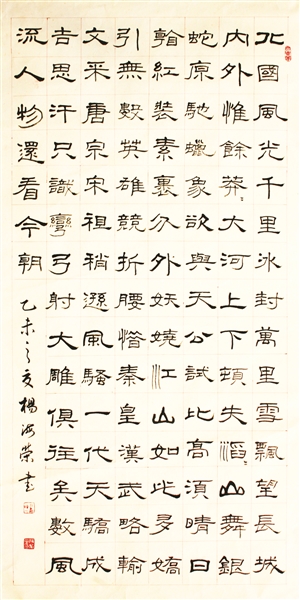 北國風光千里冰封萬里雪飄望長城
內外惟餘莽〻大河上下頓失滔〻山舞銀
蛇原馳蠟象欲與天公試比高須晴日
看紅裝素裹分外妖嬈江山如此多嬌
引無數英雄競折腰惜秦皇漢武略輸
文采唐宗宋祖稍遜風騷一代天驕成
吉思汗只識彎弓射大雕俱往矣數風
流人物還看今朝
乙未之夏楊海榮書